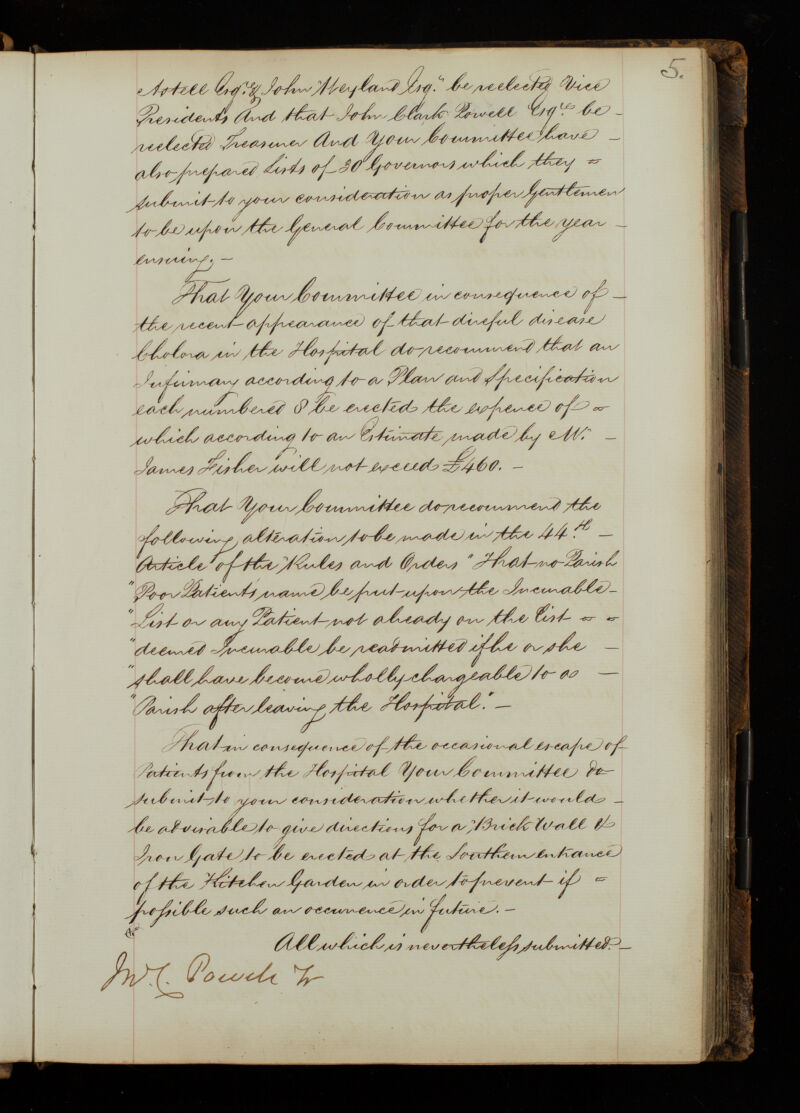 5.
Astell Esqr. & John Weyland Esqr. be reelected Vice
Presidents And that John Clark Powell Esqre. be –
reelected Treasurer And Your Committee have –
also prepared Lists of 30 Governors which they =
submit to your consideration as proper Gentlemen
to be upon the General Committee for the year –
ensuing. –
That Your Committee in consequence of –
the recent appearance of that direful disease
Cholora in the Hospital do recommend that an
Infirmary according to a Plan and Specification
each numbered 8 be erected the expence of =
which according to an Estimate made by Mr. –
James Fisher will not exceed £460. –
That Your Committee do recommend the
following alteration to be made in the 44.th –
Article of the "Rules and Orders" "That no Parish
"Poor Patients name be put upon the Incurable –
"List or any Patient not already on the List = =
"deemed Incurable be readmitted if he or she –
"shall have become wholly chargeable to a –
"Parish after leaving the Hospital." –
That in consequence of the occasional escape of
Patients from the Hospital Your Committee do
submit to your consideration whether it would –
be advisable to give directions for a Brick Wall &
Iron Gate to be erected at the Southern entrance
of the Kitchen Garden in order to prevent if =
possible such an occurrence in future. –
All which is nevertheless submitted. –
Jn. C. Powell Tr